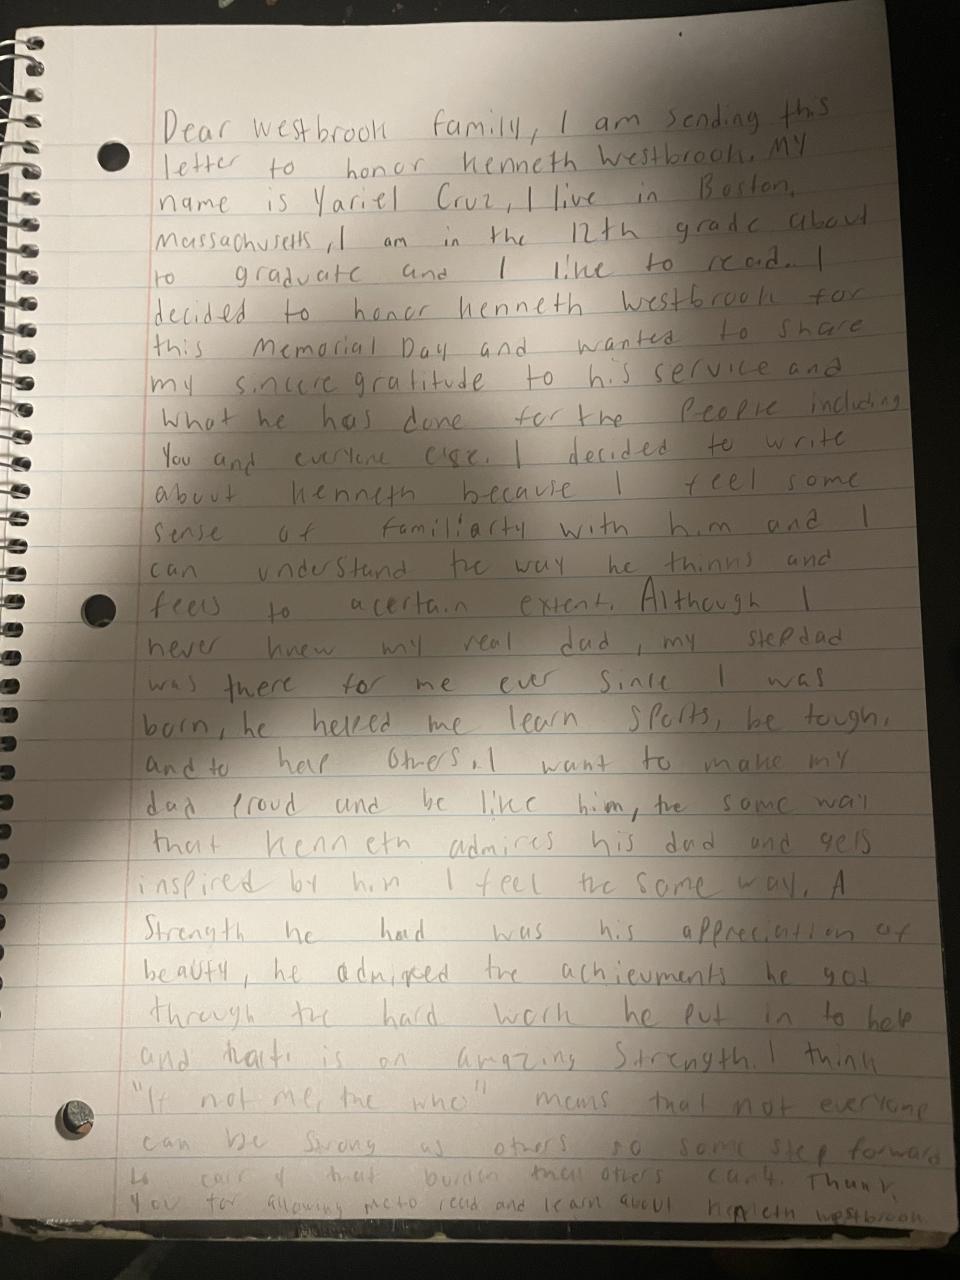 Dear Westbrook family, I am sending this
letter to honor Kenneth Westbrook. My
name is Yariel Cruz, I live in Boston,
Massachusetts, I am in the 12th grade about
to graduate and I like to read. I
decided to honor Kenneth Westbrook for
this Memorial Day and wanted to share
my sincere gratitude to his service and
what he has done for the people including
you and everyone else. I decided to write
about Kenneth because I feel some
sense of familiarty with him and I
can understand the way he thinks and
feels to a certain extent. Although I
never knew my real dad, my stepdad
was there for me ever since I was
born, he helped me learn sports, be tough,
and to help others. I want to make my
dad proud and be like him, the same way
that Kenneth admires his dad and gets
inspired by him I feel the same way. A
strength he had was his appreciation of
beauty, he admired the achievments he got
through the hard work he put in to help
and that is an amazing strength. I think
"If not me, the who" means that not everyone
can be strong as others so some step forward
to carry that burden that others can't. Thank
you for allowing me to read and learn about Kenneth Westbrook